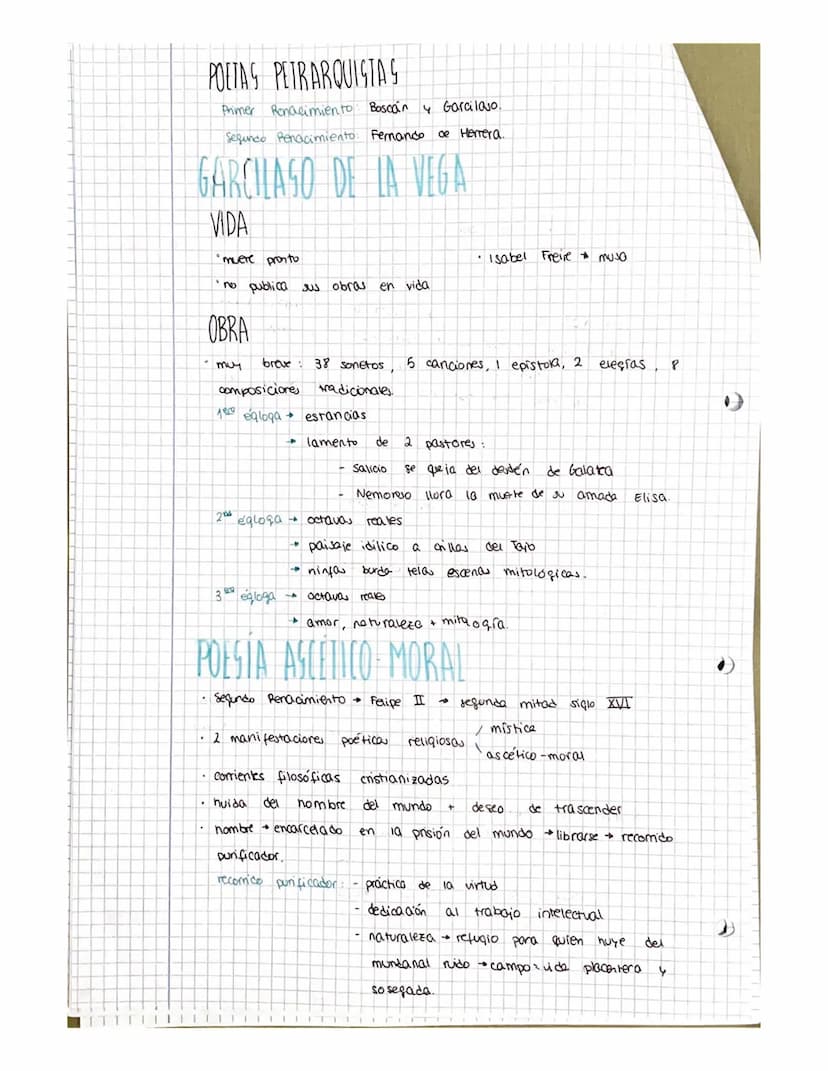 POETAS PETRARQUISTAS
Primer Renacimiento: Boscán y Garcilaso.
Segundo Renacimiento: Fernando de Herrera.
GARCILASO DE LA VEGA
VIDA
· muere pronto
· Isabel Freire → musa
· no publica sus obras en vida
OBRA
· muy breve: 38 sonetos, 5 canciones, 1 epístola, 2 elegías, 8
composiciones tradicionales.
1era égloga → estancias
→ lamento de 2 pastores:
- Salicio se queja del desdén de Galatea
- Nemoroso llora la muerte de su amada Elisa.
2nda égloga → octavas reales
→ paisaje idílico a orillas del Tajo
→ ninfas borda telas escenas mitológicas.
3era égloga → octavas reales
→ amor, naturaleza + mitología.
POESÍA ASCÉTICO-MORAL
· Segundo Renacimiento → Felipe II → segunda mitad siglo XVI
· 2 manifestaciones poéticas religiosas / mística
\ ascético-moral
· corrientes filosóficas cristianizadas
· huida del hombre del mundo + deseo de trascender
· hombre → encarcelado en la prisión del mundo → librarse → recorrido
purificador.
recorrido purificador: - práctica de la virtud
- dedicación al trabajo intelectual
- naturaleza → refugio para quien huye del
mundanal ruido → campo = vida placentera y
sosegada.